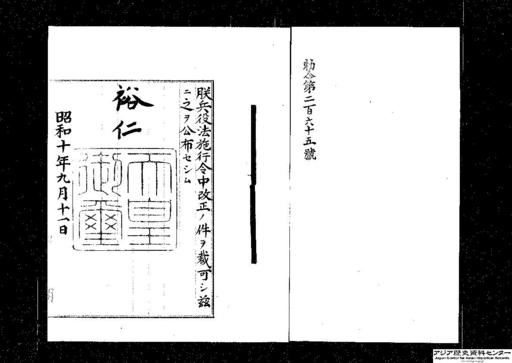 勅令第二百六十五號
朕兵役法施行令中改正ノ件ヲ裁可シ茲
ニ之ヲ公布セシム
裕仁
天皇御璽
昭和十年九月十一日
アジア歴史資料センター
Japan Center for Asian Historical Records